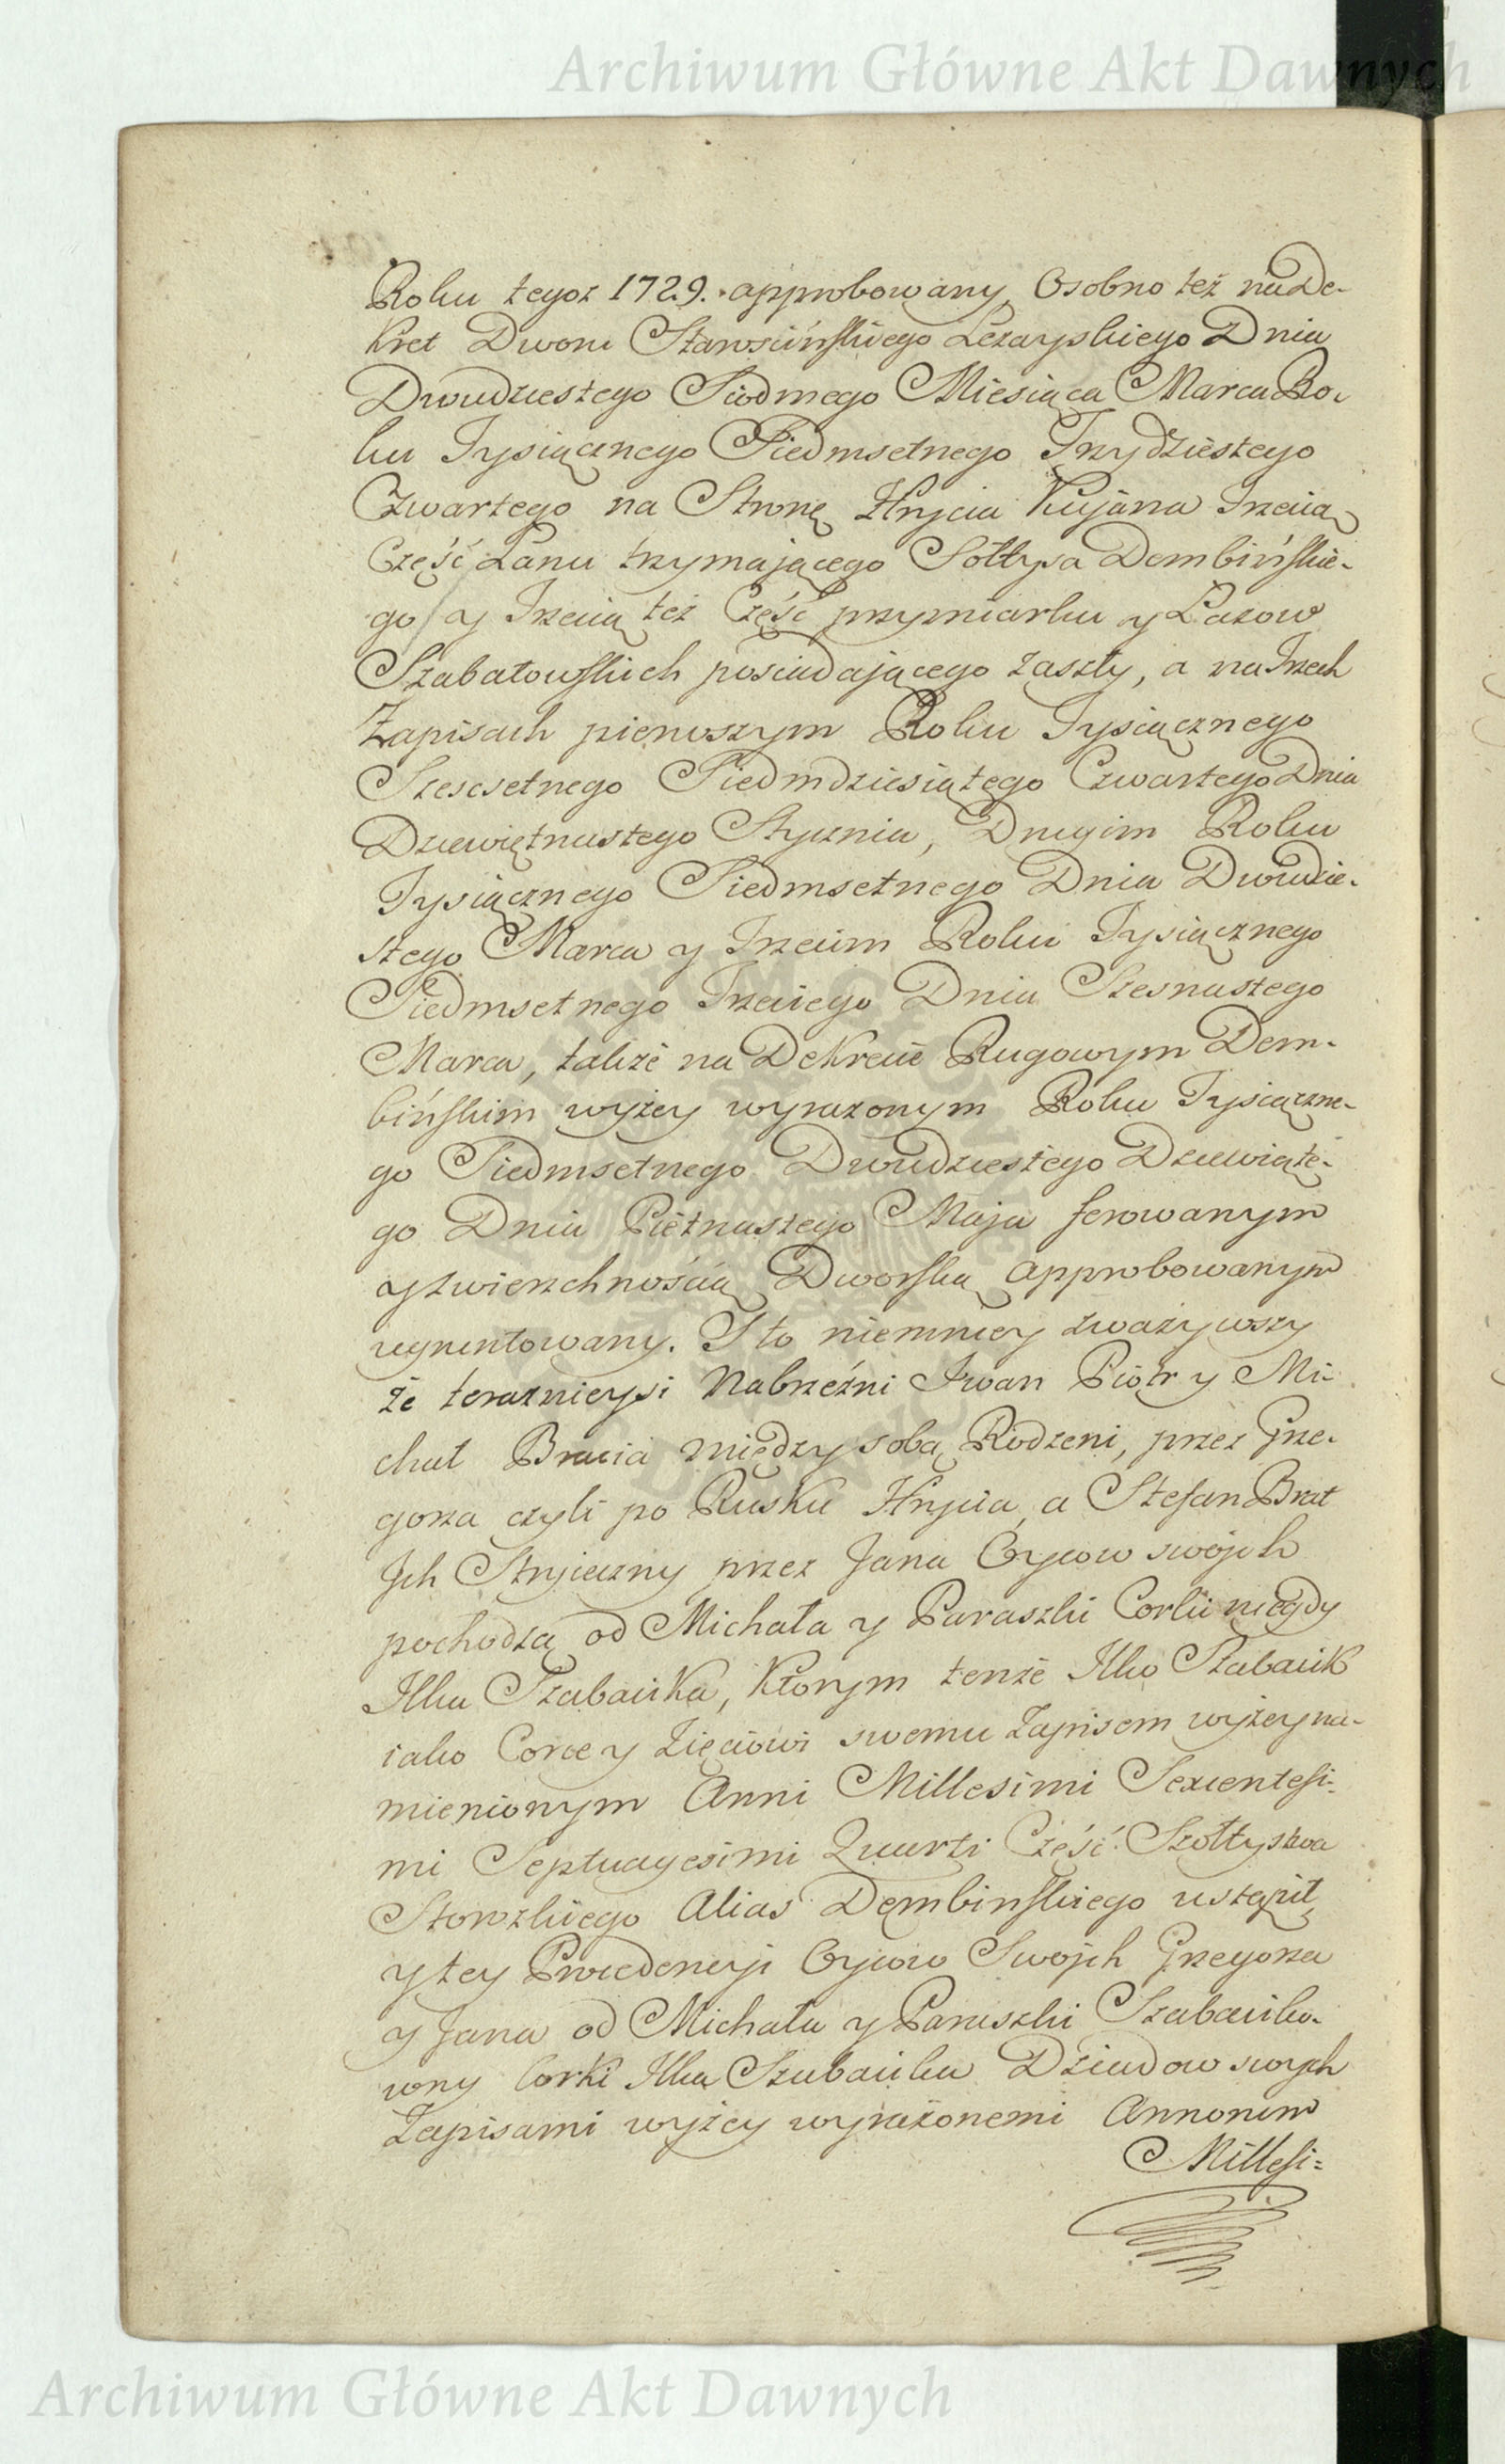 Archiwum Główne Akt Dawnych
Roku tegoz 1729. approbowany, Osobno też na De-
kret Dworu Starościńskiego Leżayskiego Dnia
Dwudziestego Siodmego Miesiąca Marca Ro-
ku Tysiącznego Siedmsetnego Trzydziestego
Czwartego na Stronę Hrycia Kujana Trzecią
Część Łanu trzymającego Sołtysa Dombińskie-
go / y Trzecią też Część przymiarku y Łazow
Szabatowskich posiadającego zaszły, a na Trzech
Zapisach pierwszym Roku Tysiącznego
Szescsetnego Siedmdziesiątego Czwartego Dnia
Dziewiętnastego Stycznia, Drugim Roku
Tysiącznego Siedmsetnego Dnia Dwudzie-
stego Marca y Trzecim Roku Tysiącznego
Siedmsetnego Trzeciego Dnia Szesnastego
Marca, także na Dekrecie Rugowym Dem-
bińskim wyżey wyrazonym Roku Tysiączne-
go Siedmsetnego Dwudziestego Dziewiąte-
go Dnia Piętnastego Maja ferowanym
y zwierzchnością Dworską approbowanym
ugruntowany. I to niemniey zważywszy
że teraznieysi Nabrzeźni Iwan Piotr y Mi-
chał Bracia między sobą Rodzeni, przez Grze-
gorza czyli po Rusku Hrycia, a Stefan Brat
Jch Stryieczny przez Jana Oycow swojch
pochodzą od Michała y Paraszki Corki niegdy
Ilka Szabaiika, ktorym tenże Ilko Szabaiik
iako Corce y Zięciowi swemu Zapisem wyżey na-
mienionym Anni Millesimi Sexcentesi-
mi Septuagesimi Quarti Część Szołtystwa
Storozkiego Alias Dembinskiego ustąpił,
y tey Prowedencyi Oycow Swojch Grzegorza
y Jana od Michała y Paraszki Szabaiiko-
wny Corki Ilka Szabaiika Dziadow swych
Zapisami wyżey wyrażonemi Annorum
Millesi=
Archiwum Główne Akt Dawnych